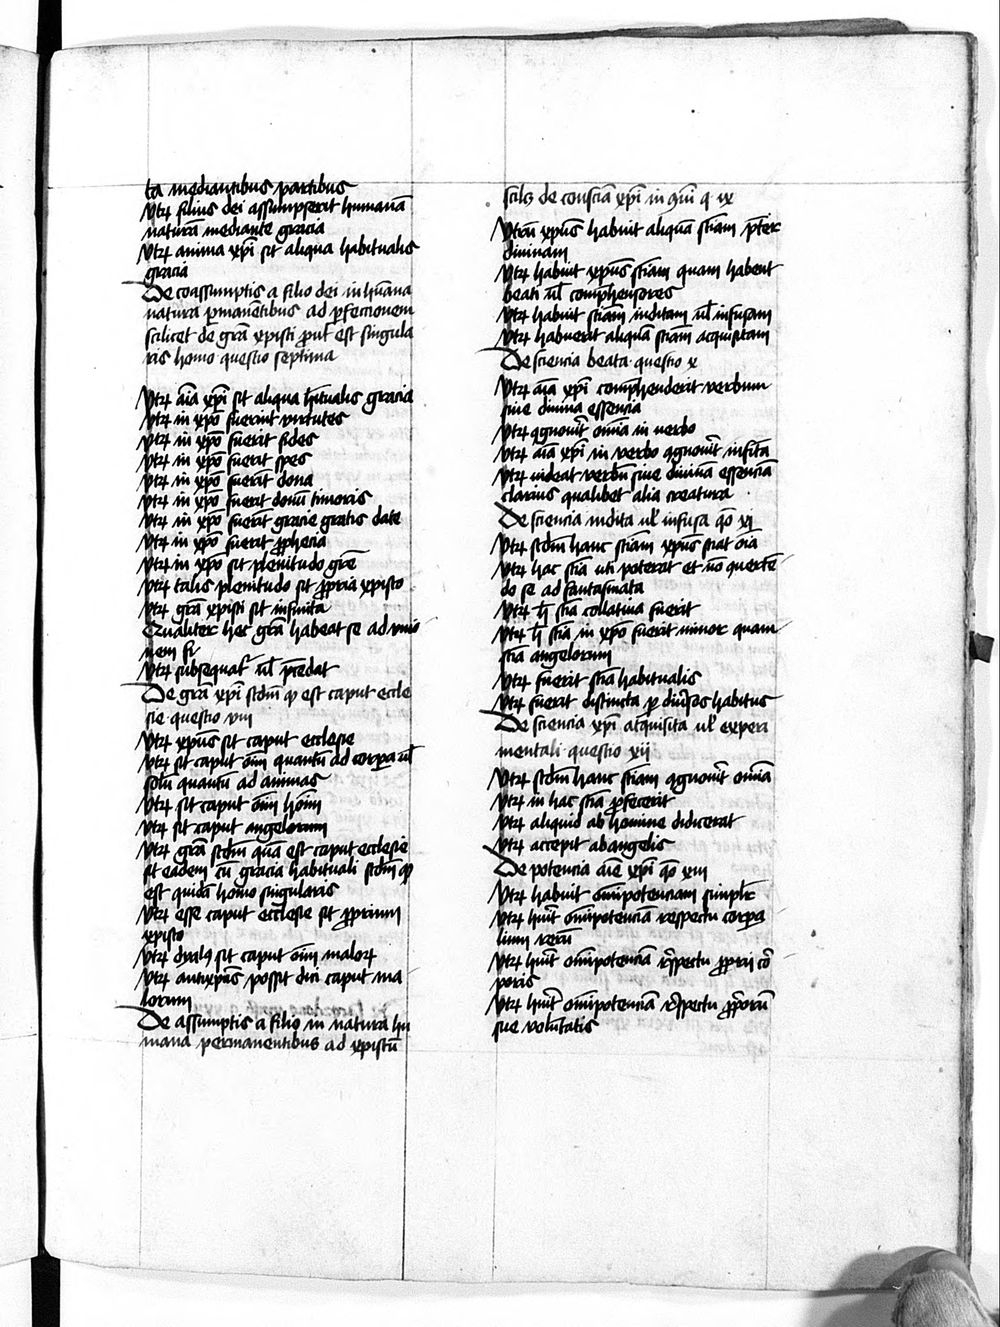 ta mediantibus partibus
Utrꝝ filius dei assumpserit humanā
naturā mediante gracia
Utrꝝ anima xp̄i sit aliqua habitualis
gracia
De coassumptis a filio dei in hūana
natura ꝑmanētibus ad ꝑfectionem
scilicet de grā xpisti ꝓut est singula
ris homo questio septima
Utrꝝ aīa xp̄i sit aliqua hītualis gracia
Utrꝝ in xp̄o fuerint virtutes
Utrꝝ in xp̄o fuerit fides
Utrꝝ in xp̄o fuerit spes
Utrꝝ in xp̄o fuerit dona
Utrꝝ in xp̄o fuerit donū timoris
Utrꝝ in xp̄o fuerit gracie gratis date
Utrꝝ in xp̄o fuerit ꝓphecia
Utrꝝ in xp̄o sit plenitudo grē
Utrꝝ talis plenitudo sit ꝓpria xpisto
Utrꝝ grā xpisti sit infinita
Qualiter hec grā habeat se ad vnio
nem
Utrꝝ subsequat᷑ ul̄ p̄cedat
De grā xp̄i scdm̄ ꝙ est caput eccle
sie questio viii
Utrꝝ xp̄us sit caput ecclesie
Utrꝝ sit caput oīm quantū ad corpora ul̄
solū quantū ad animas
Utrꝝ sit caput oīm hoīm
Utrꝝ sit caput angelorum
Utrꝝ grā scdm̄ quā est caput ecclesie
sit eadem cū gracia habituali scdm̄ ꝙ
est quidā homo singularis
Utrꝝ esse caput ecclesie sit ꝓprium
xpisto
Utrꝝ dyalꝰ sit caput oīm maloꝝ
Utrꝝ antixp̄us possit dici caput ma
lorum
De assumptis a filio in natura hu
mana permanentibus ad xpistū
scilꝫ de xp̄i in q ix
Utrū xp̄us habuit aliquā sciam p̄ter
diuinam
Utrꝝ habuit xp̄us sciam quam habent
beati ul̄ comp̄hensores
Utrꝝ habuit sciam inditam ul̄ infusam
Utrꝝ habuerit aliquā sciam acquisitam
De sciencia beata questio x
Utrꝝ aīa xp̄i comp̄henderit verbum
siue diuina essencia
Utrꝝ ꝯgnouit omīa in verbo
Utrꝝ aīa xp̄i in verbo ꝯgnouit infīta
Utrꝝ uideat verbū siue diuinā essenciā
clarius qualibet alia creatura
De sciencia indita ul̄ infusa qō xi
Utrꝝ scdm̄ hanc sciam xp̄us sciat oīa
Utrꝝ hac scia uti poterat et nō querten
do se ad fantasmata
Utrꝝ h̄ scia collatiua fuerit
Utrꝝ h̄ scia in xp̄o fuerit minor quam
scia angelorum
Utrꝝ fuerit scia habitualis
Utrꝝ fuerit distincta ꝑ diūsos habitus
De sciencia xp̄i acquisita ul̄ experi
mentali questio xii
Utrꝝ scdm̄ hanc sciam ꝯgnouit omīa
Utrꝝ in hac scia ꝓfecerit
Utrꝝ aliquid ab homine didicerat
Utrꝝ accepit ab angelis
De potencia aīe xp̄i qō xiii
Utrꝝ habuit omīpotenciam simplr̄
Utrꝝ huīt omīpotenciā respectu corpa
lium rerū
Utrꝝ huīt omīpotenciā respectu ꝓprii cor
poris
Utrꝝ huīt omīpotenciā respectu
sue volūtatis